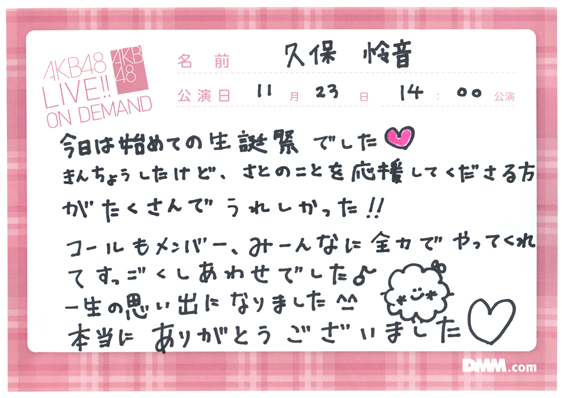 AKB48
LIVE!!
ON DEMAND
AKB
48
名前 久保 怜音
公演日 11月23日 14:00公演
今日は始めての生誕祭でした
きんちょうしたけど、さとのことを応援してくださる方
がたくさんでうれしかった!!
コールもメンバー、みーんなに全力でやってくれ
てすっごくしあわせでした♪
一生の思い出になりました^^
本当にありがとうございました♡
DMM.com